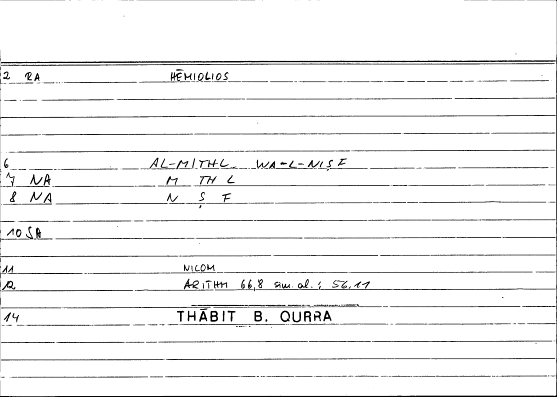 2 RA HĒMIOLIOS
6 AL-MITHL WA-L-NIṢF
7 NA M TH L
8 NA N Ṣ F
10 SA
11 NICOM
12 ARITHM 66,8 sim. al.: 56,11
14 THĀBIT B. QURRA